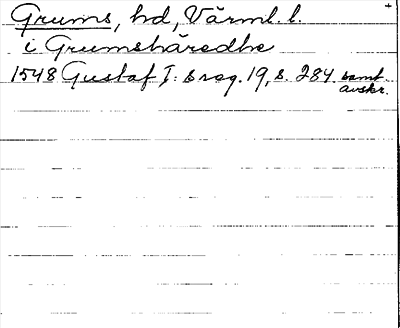 Grums, hd, Värml. l.
i Grumshäredhe
1548 Gustaf I: s reg. 19, s. 284. samt. avskr.